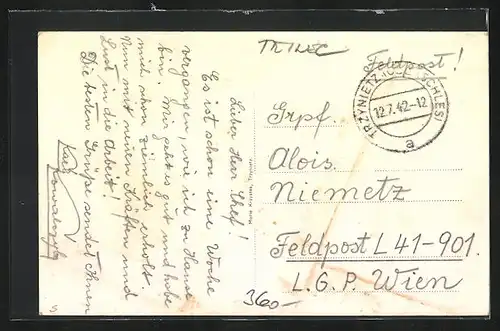 Lieber Herr Chef!
Es ist schon eine Woche
vergangen, wie ich zu Hause
bin. Mir geht es gut und habe
mich schon ziemlich erholt.
Nun mit neuen Kräften und
Lust in die Arbeit!
Die besten Grüße sendet Ihnen
Karl
Kowalczyk
TRINEC
Feldpost!
TRZYNIETZ (OSTSCHLES)
12.7.42-12
a
Grpf.
Alois
Niemetz
Feldpost L 41-901.
L.G.P. Wien
360-